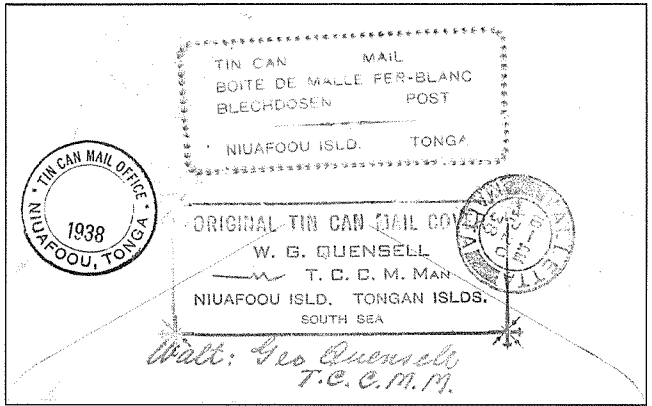 TIN CAN MAIL
BOITE DE MALLE FER-BLANC
BLECHDOSEN POST
NIUAFOOU ISLD. TONGA
* TIN CAN MAIL OFFICE *
1938
NIUAFOOU, TONGA
ORIGINAL TIN CAN MAIL COVER
W. G. QUENSELL
T. C. C. M. MAN
NIUAFOOU ISLD. TONGAN ISLDS.
SOUTH SEA
VALLETTA
MALTA
38
Walt: Geo Quensell
T.C.C.M.M.